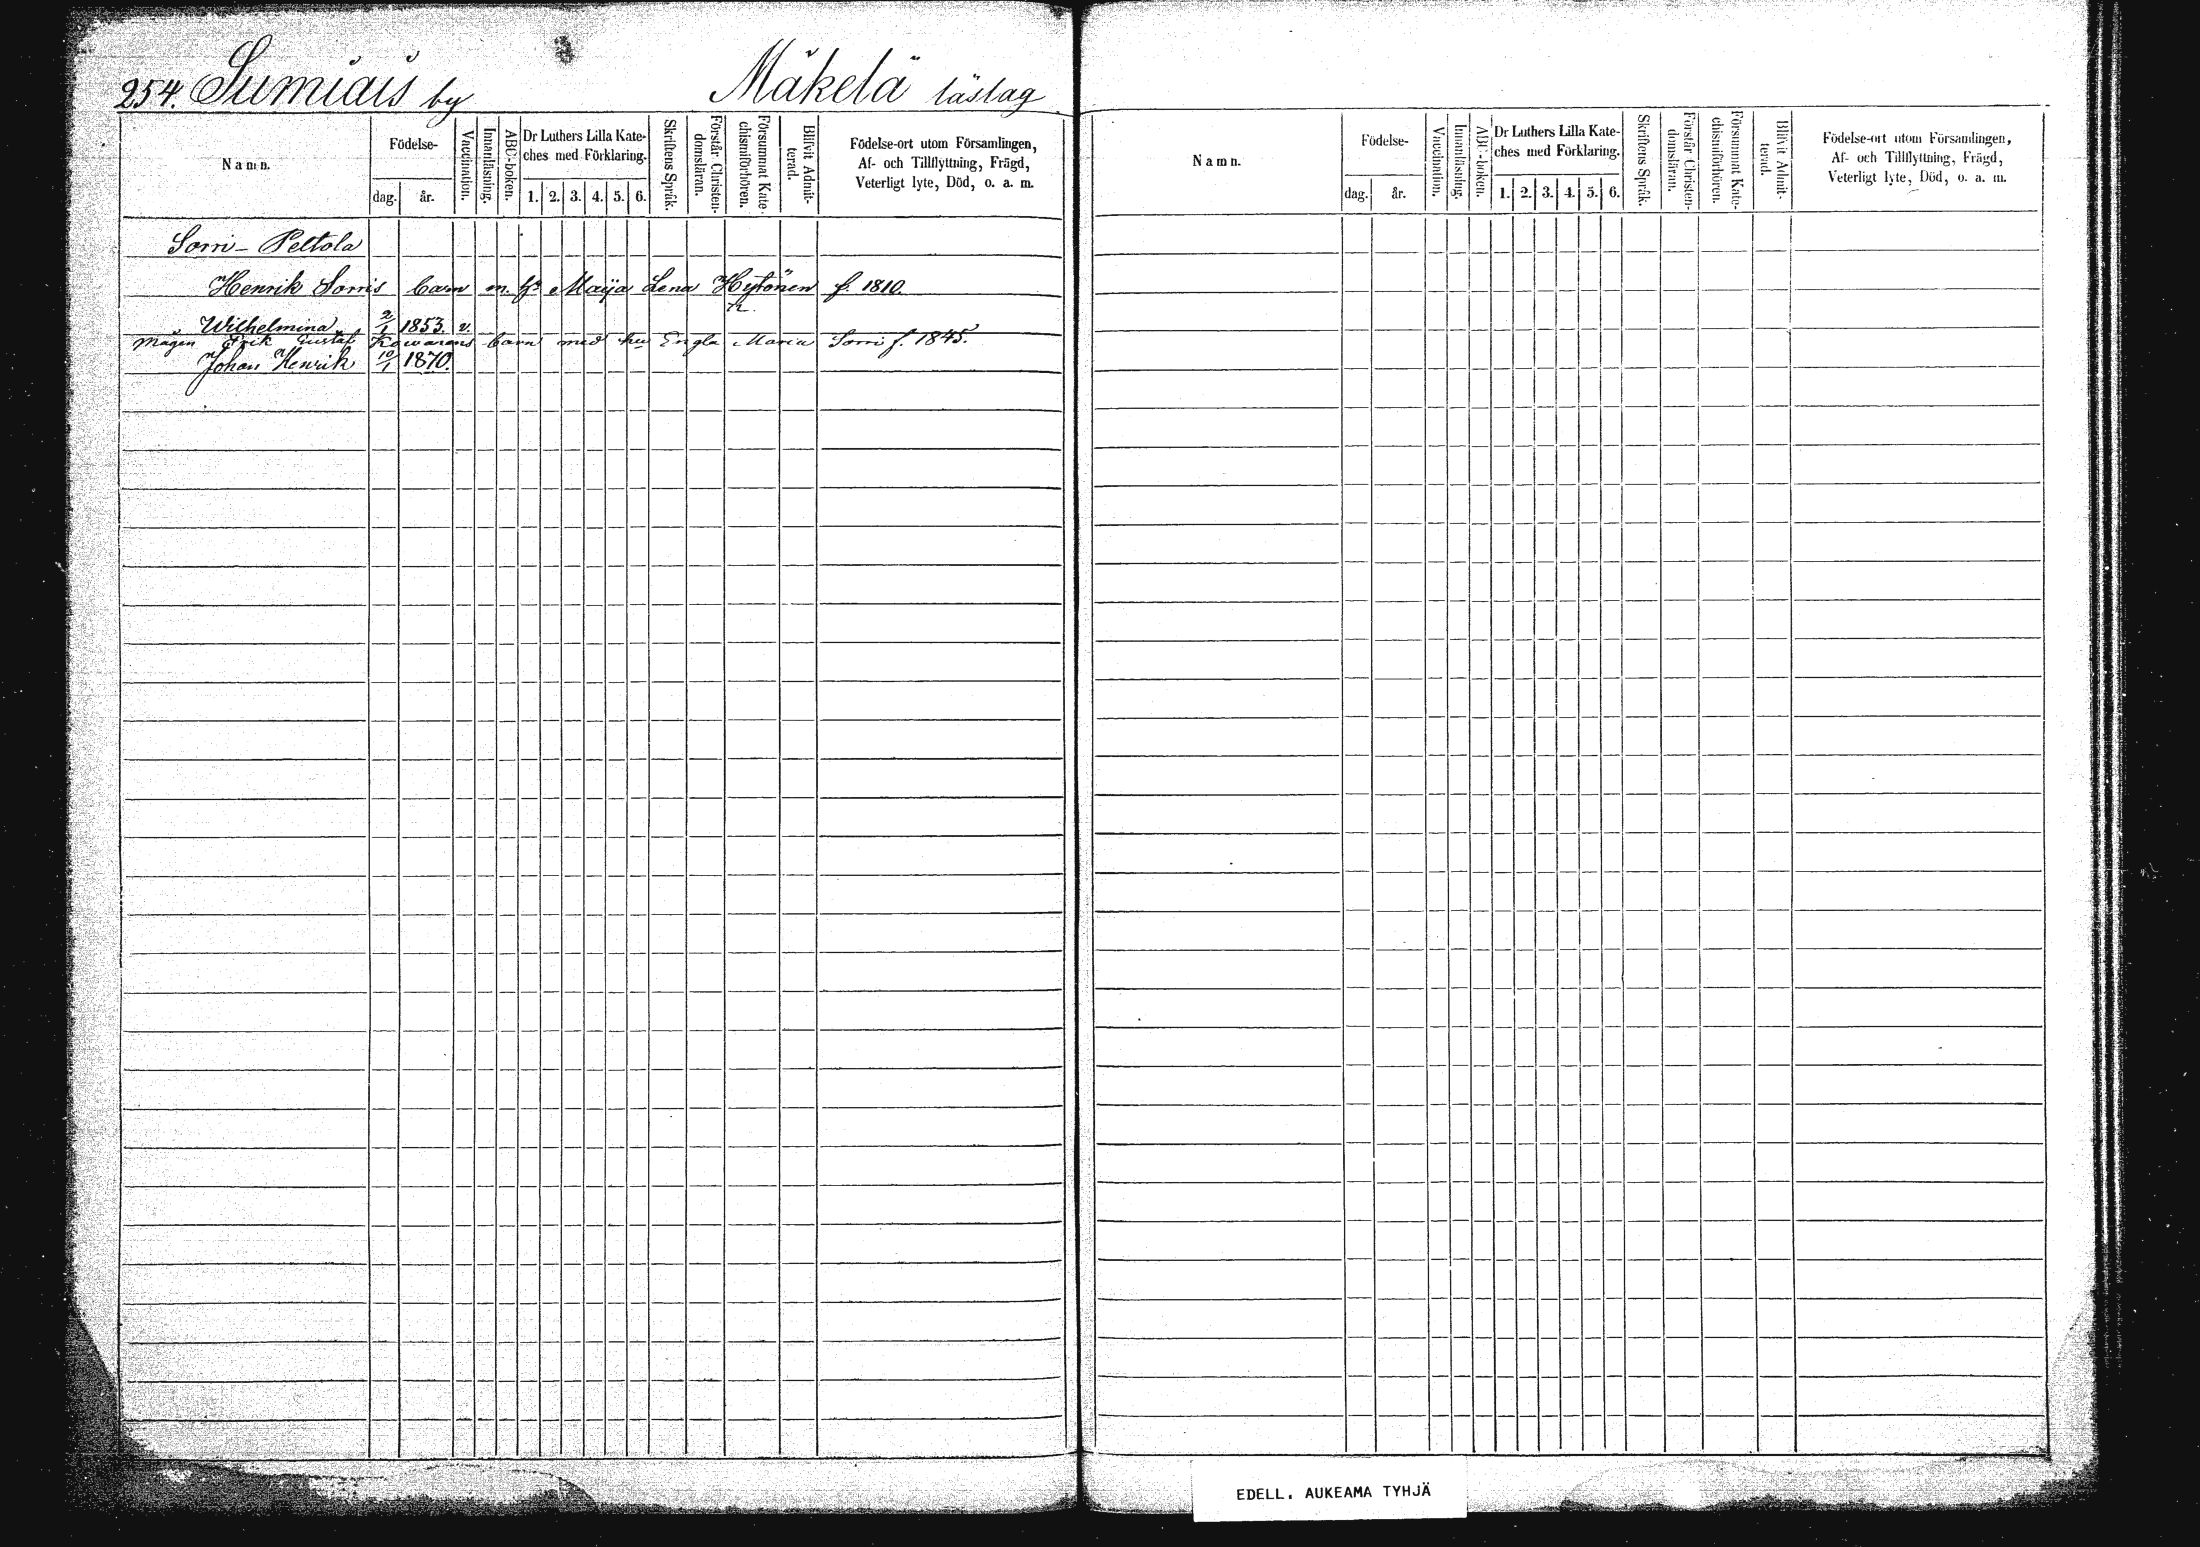 254. Sumiais by Mäkelä läslag
Namn.
Födelse-
dag. år.
Vaccination.
Innanläsning.
ABC-boken.
Dr Luthers Lilla Kate-
ches med Förklaring.
1. 2. 3. 4. 5. 6.
Skriftens Språk.
Förstår Christen-
domsläran.
Försummat Kate-
chismiförhören.
Blifvit Admit-
terad.
Födelse-ort utom Församlingen,
Af- och Tillflyttning, Frägd,
Veterligt lyte, Död, o. a. m.
Sorri-Peltola
Henrik Sorris barn m. h. Maija Lena Hytönen f. 1810.
Wilhelmina 2/1 1853. v.
mågen Erik Gustaf Kowanens barn med hu Engla Maria Sorri f. 1845.
Johan Henrik 10/1 1870.
Namn.
Födelse-
dag. år.
Vaccination.
Innanläsning.
ABC-boken.
Dr Luthers Lilla Kate-
ches med Förklaring.
1. 2. 3. 4. 5. 6.
Skriftens Språk.
Förstår Christen-
domsläran.
Försummat Kate-
chismiförhören.
Blifvit Admit-
terad.
Födelse-ort utom Församlingen,
Af- och Tillflyttning, Frägd,
Veterligt lyte, Död, o. a. m.
EDELL. AUKEAMA TYHJÄ